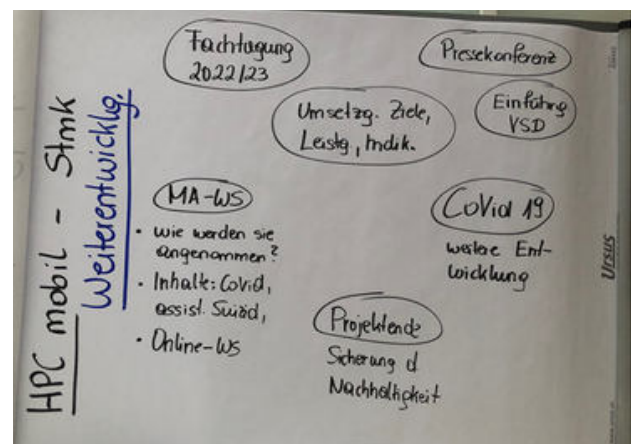 HPC mobil - Stmk
Weiterentwicklg.
Fachtagung
2022/23
Pressekonferenz
Umsetzg. Ziele,
Leistg., Indik.
Einführg
VSD
MA-WS
• wie werden sie
angenommen?
• Inhalte: Covid,
assist. Suizid,
• Online-WS
CoVid 19
weitere Ent-
wicklung
Projektende
Sicherung d
Nachhaltigkeit
Ursus